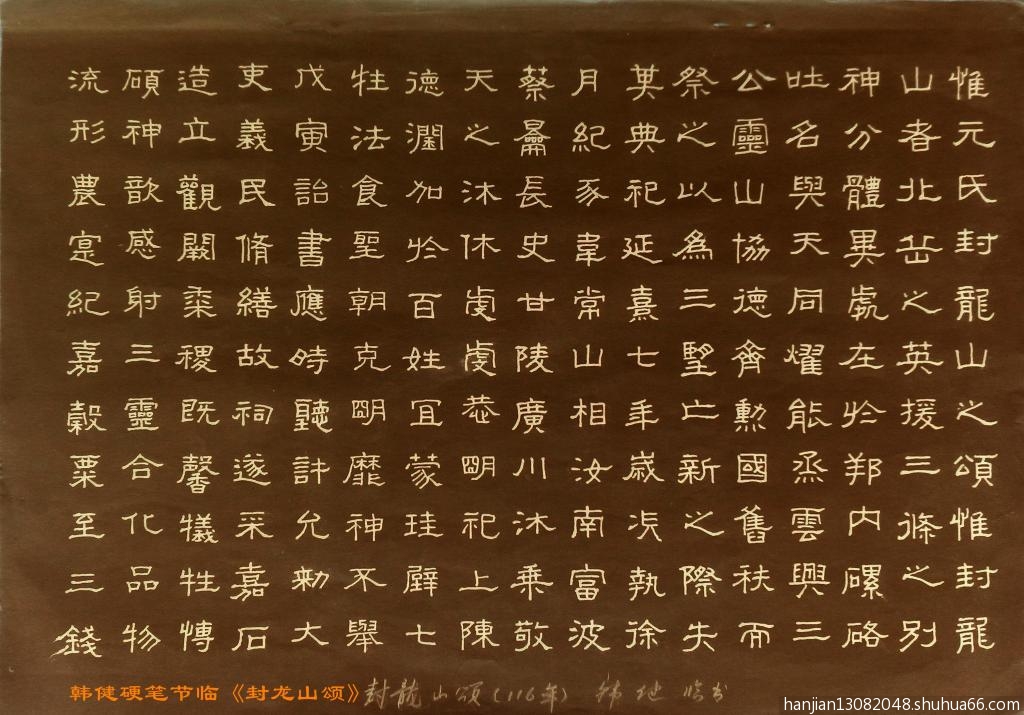 惟元氏封龍山之頌惟封龍
山者北岳之英援三條之别
神分體異處在於邦内磥硌
吐名與天同燿能烝雲興三
公靈山協德齊勳國舊秩而
祭之以為三望亡新之際失
其典祀延熹七年歲次執徐
月紀豕韋常山相汝南富波
蔡龠長史甘陵廣川沐乘敬
天之沐休虔虔恭明祀上陳
德潤加於百姓宜蒙珪璧七
牲法食聖朝克明靡神不舉
戊寅詔書應時聽許允勑大
吏義民脩繕故祠遂采嘉石
造立觀闕黍稷既馨犧牲博
碩神歆感射三靈合化品物
流形農寔紀嘉穀粟至三錢
韩健硬笔节临《封龙山颂》
封龍山頌(116年) 临书
hanjian13082048.shuhua66.com